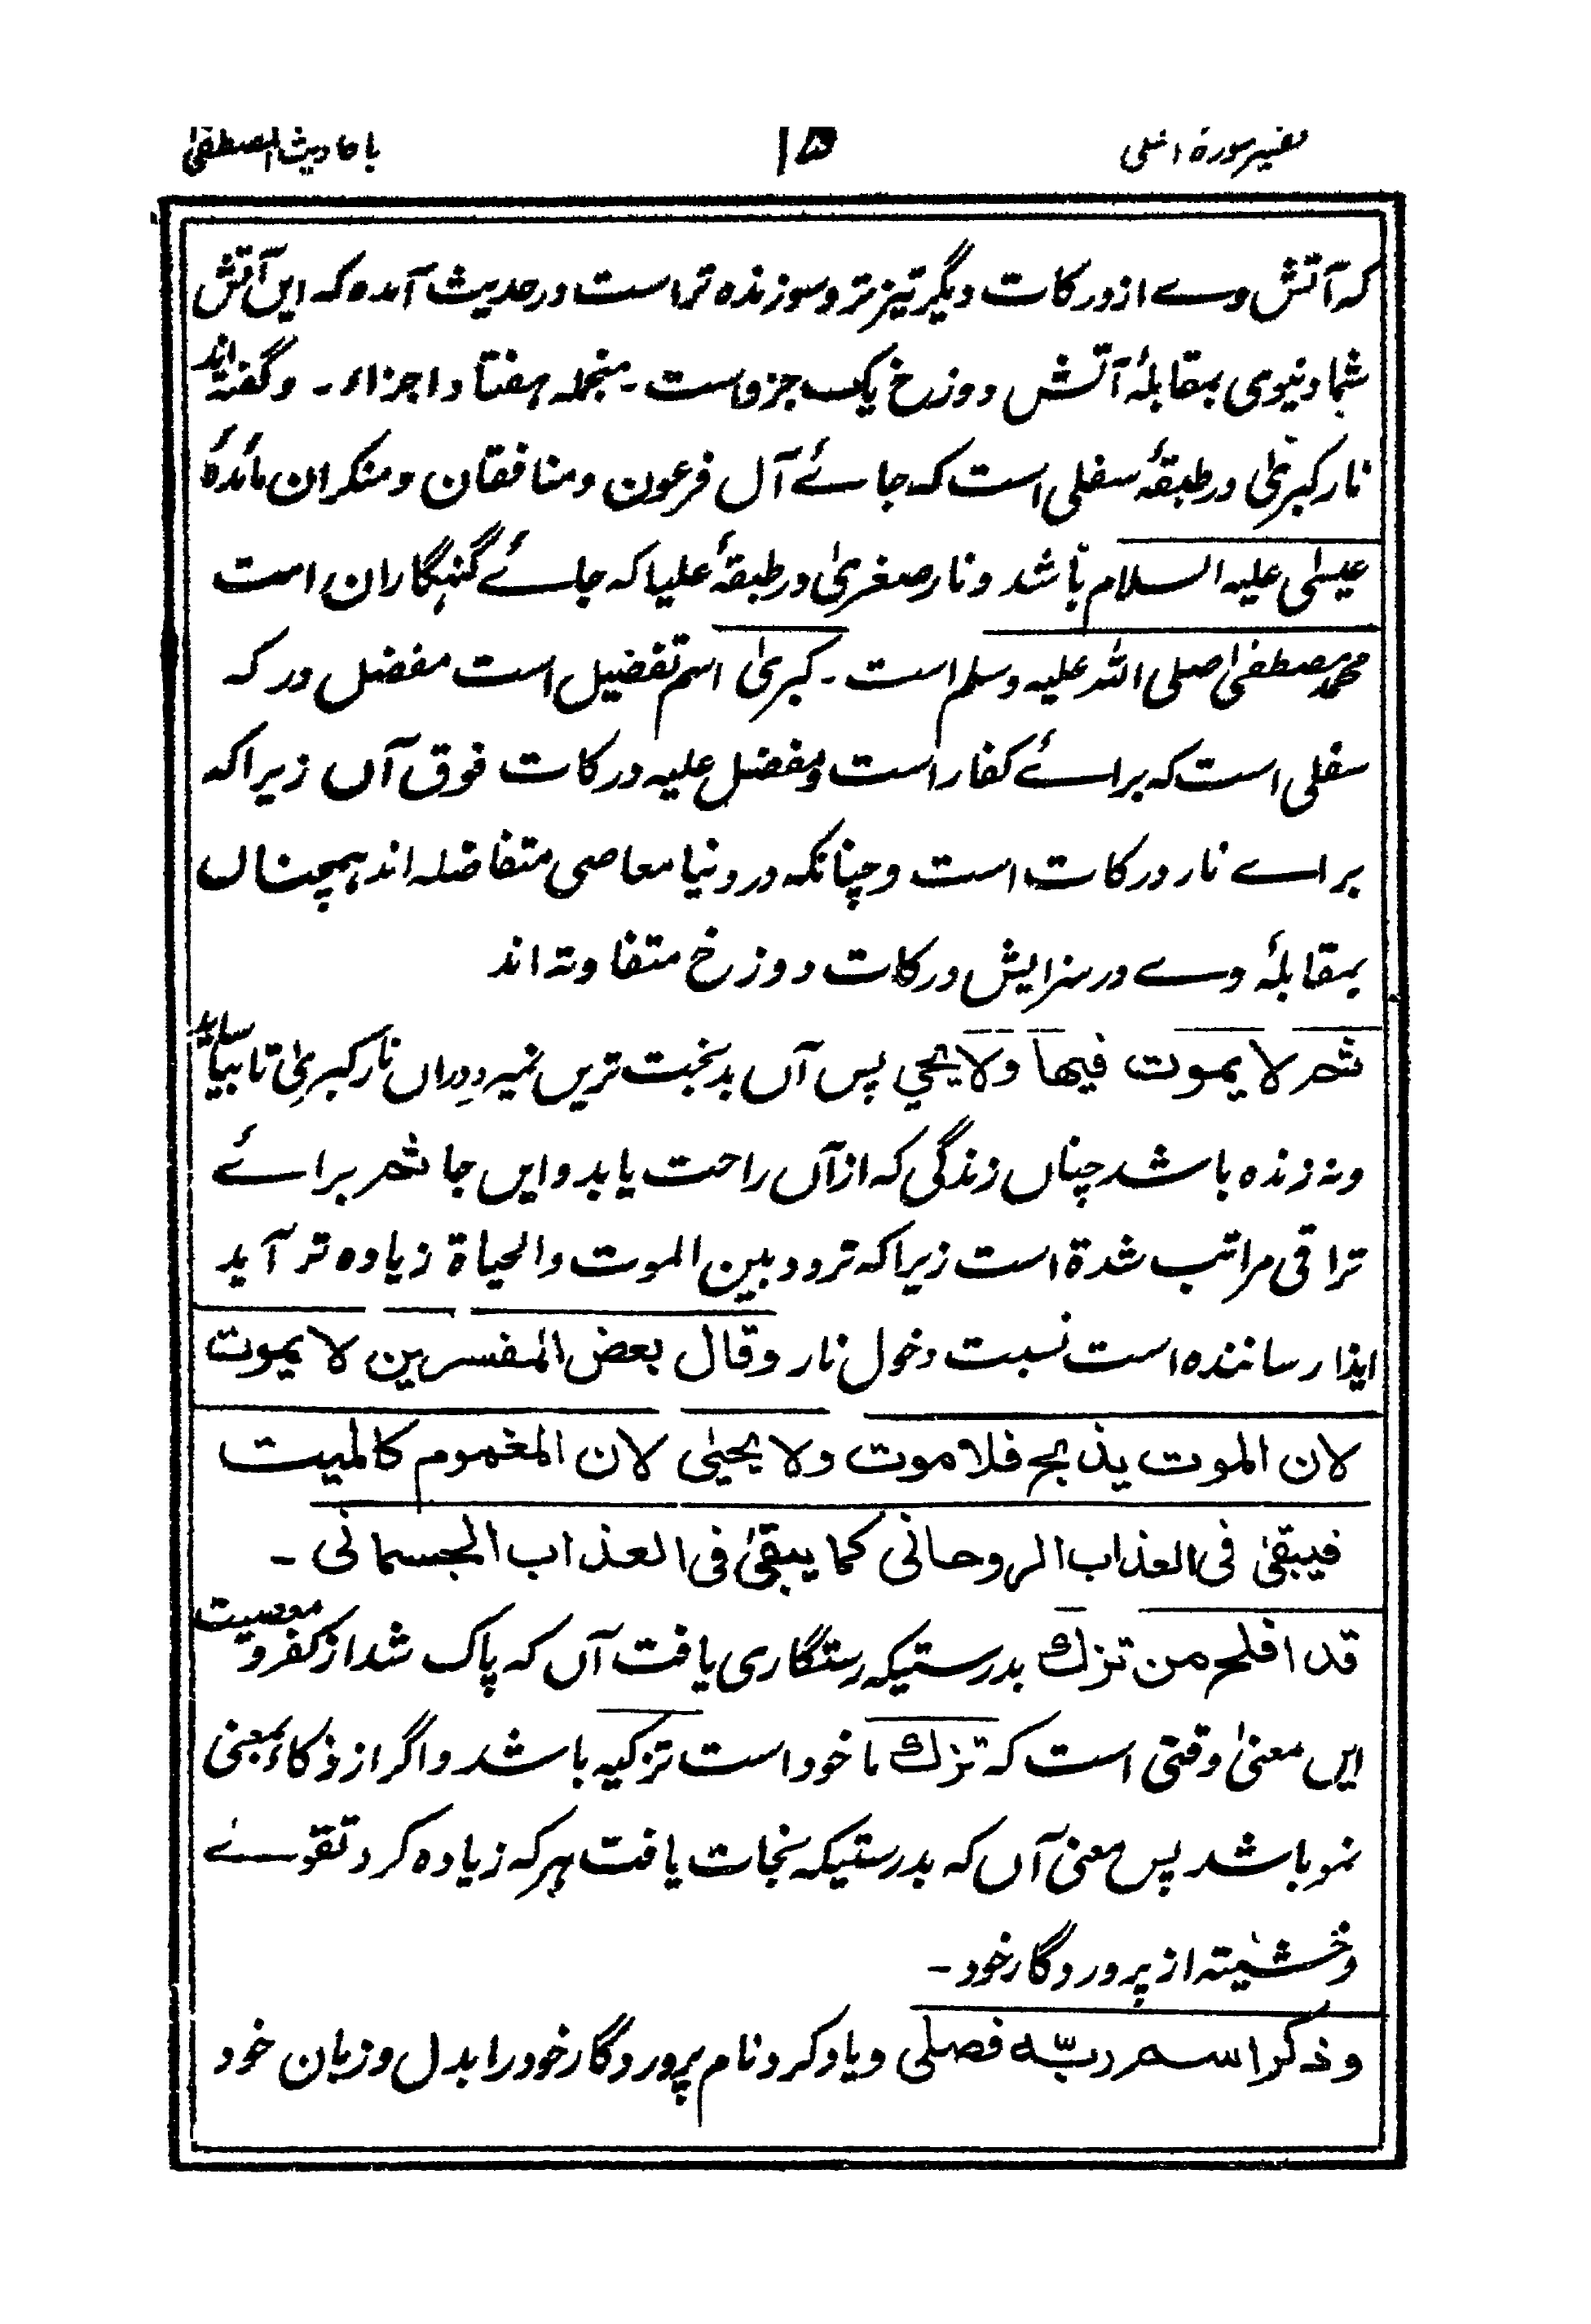 تفسیر سورهٔ اعلی ۱۵ باحادیث المصطفیٰ
که آتش وے از درکات دیگر تیز تر و سوزنده تر است در حدیث آمده که این آتش
شما دنیوی بمقابلۂ آتش دوزخ یک جزواست - منجمله ہفتاد اجزاء - و گفته اند
نار کبریٰ در طبقۂ سفلی است که جائے آل فرعون و منافقان و منکران مائدۂ
عیسٰی علیه السلام باشد و نار صغریٰ در طبقۂ علیا که جائے گنہگاران است
محمد مصطفیٰ صلی اللہ علیه وسلم است - کبریٰ اسم تفضیل است مفضل درکه
سفلی است که برائے کفار است و مفضل علیه درکات فوق آں زیرا که
براے نار درکات است و چنانکه در دنیا معاصی متفاضله اند ہمچناں
بمقابلۂ وے در سزایش درکات دوزخ متفاوته اند
ثم لا یموت فیھا ولا یحیی پس آں بدبخت ترین نمیرد دراں نار کبریٰ تا بیاساید
و نه زنده باشد چناں زندگی که ازآں راحت یابد و ایں جا ثم برائے
تراقی مراتب شدة است زیرا که تردد بین الموت والحیاة زیاده تر آید
ایذا رساننده است نسبت دخول نار وقال بعض المفسرین لا یموت
لان الموت یذبح فلا موت ولا یحییٰ لان المغموم کالمیت
فیبقیٰ فی العذاب الروحانی کما یبقیٰ فی العذاب الجسمانی -
قد افلح من تزکی بدرستیکه رستگاری یافت آں که پاک شد از کفر و معصیت
ایں معنیٰ وقتی است که تزکی ماخود است تزکیه باشد و اگر از ذکاء بمعنی
نمو باشد پس معنی آں که بدرستیکه نجات یافت ہرکه زیاده کرد تقوے
و خشیته از پروردگار خود -
وذکر اسم ربّه فصلی و یاد کرد نام پروردگار خود را بدل و زبان خود